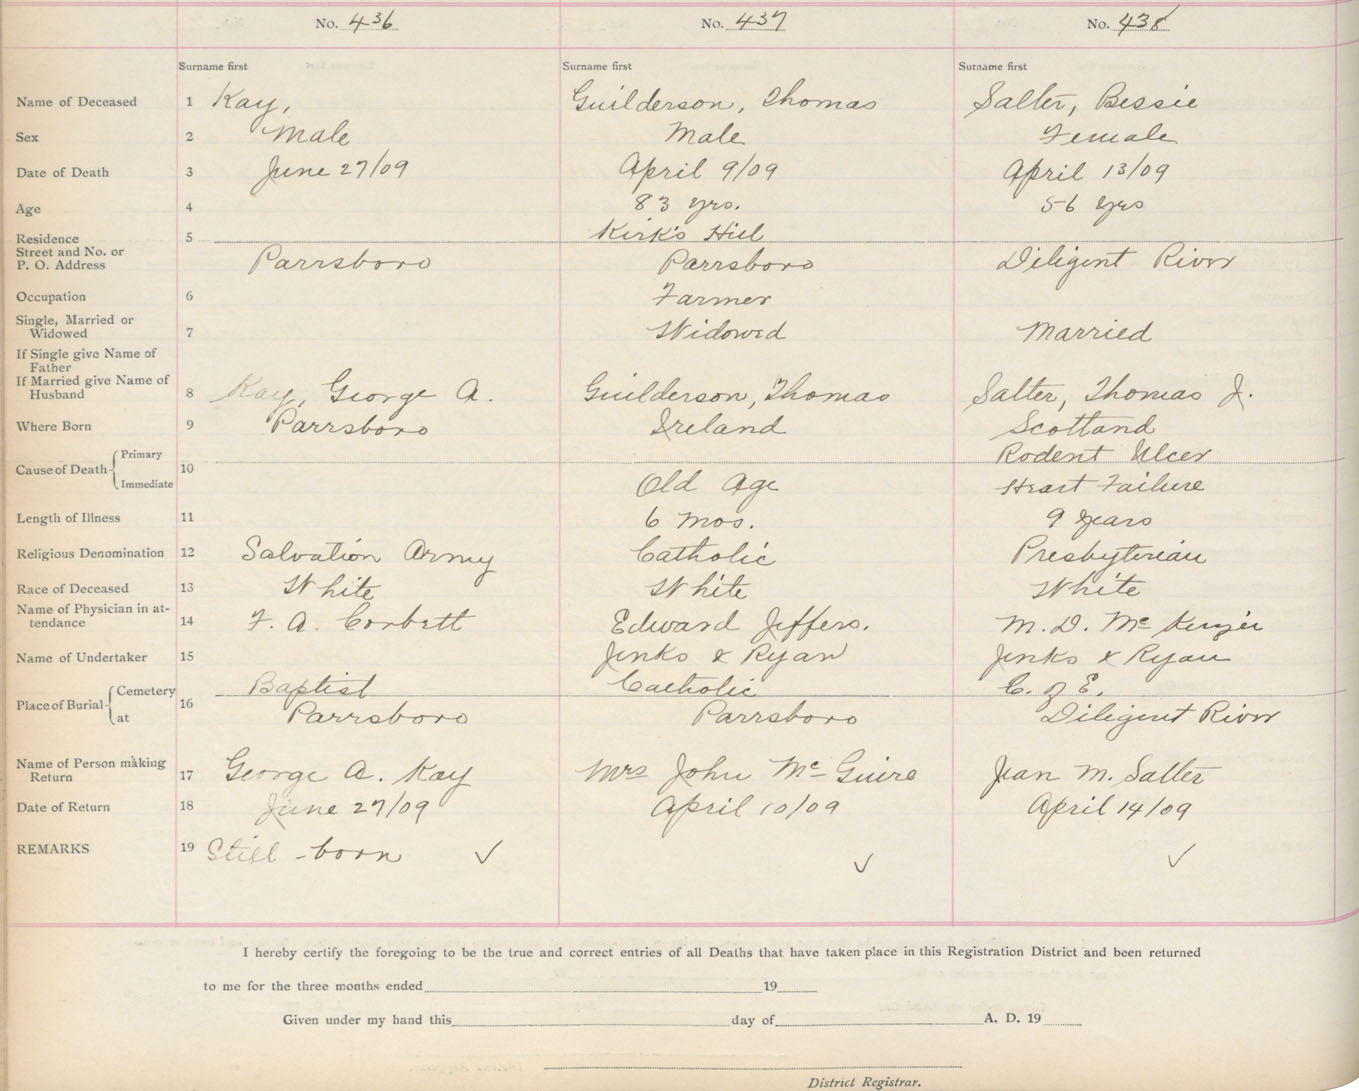 No. 436 No. 437 No. 438
Surname first Surname first Surname first
Name of Deceased 1 Kay, Guilderson, Thomas Salter, Bessie
Sex 2 Male Male Female
Date of Death 3 June 27/09 April 9/09 April 13/09
Age 4 83 yrs. 56 yrs
Residence 5 Kirk's Hill
Street and No. or
P. O. Address Parrsboro Parrsboro Diligent River
Occupation 6 Farmer
Single, Married or
Widowed 7 Widowed Married
If Single give Name of
Father
If Married give Name of
Husband 8 Kay, George A. Guilderson, Thomas Salter, Thomas J.
Where Born 9 Parrsboro Ireland Scotland
Cause of Death Primary 10 Rodent Ulcer
Immediate Old Age Heart Failure
Length of Illness 11 6 mos. 9 years
Religious Denomination 12 Salvation Army Catholic Presbyterian
Race of Deceased 13 White White White
Name of Physician in at-
tendance 14 F. A. Corbett Edward Jeffers. M. D. McKenzie
Name of Undertaker 15 Jenks & Ryan Jenks & Ryan
Place of Burial Cemetery 16 Baptist Catholic C. of E.
at Parrsboro Parrsboro Diligent River
Name of Person making
Return 17 George A. Kay Mrs John McGuire Jean M. Salter
Date of Return 18 June 27/09 April 10/09 April 14/09
REMARKS 19 Still-born ✓ ✓ ✓
I hereby certify the foregoing to be the true and correct entries of all Deaths that have taken place in this Registration District and been returned
to me for the three months ended 19
Given under my hand this day of A. D. 19
District Registrar.